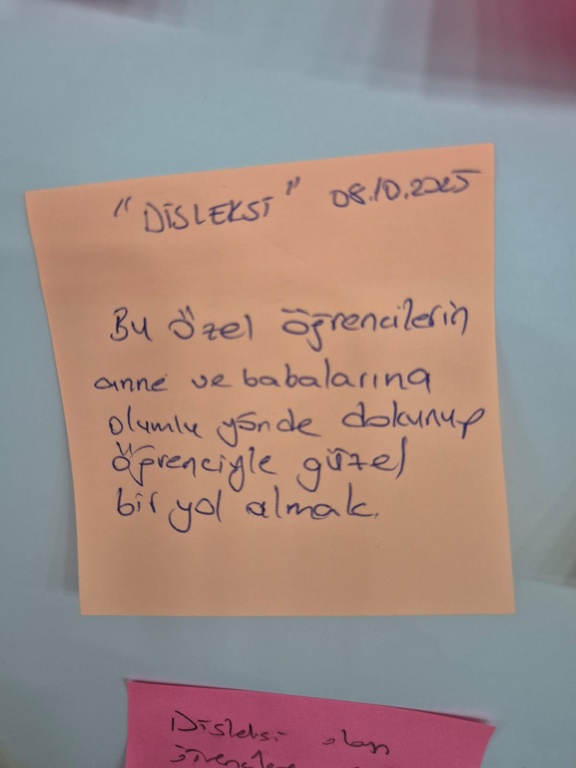 "DİSLEKSİ" 08.10.2025
Bu özel öğrencilerin
anne ve babalarına
olumlu yönde dokunup
öğrenciyle güzel
bir yol almak.
Disleksi olan